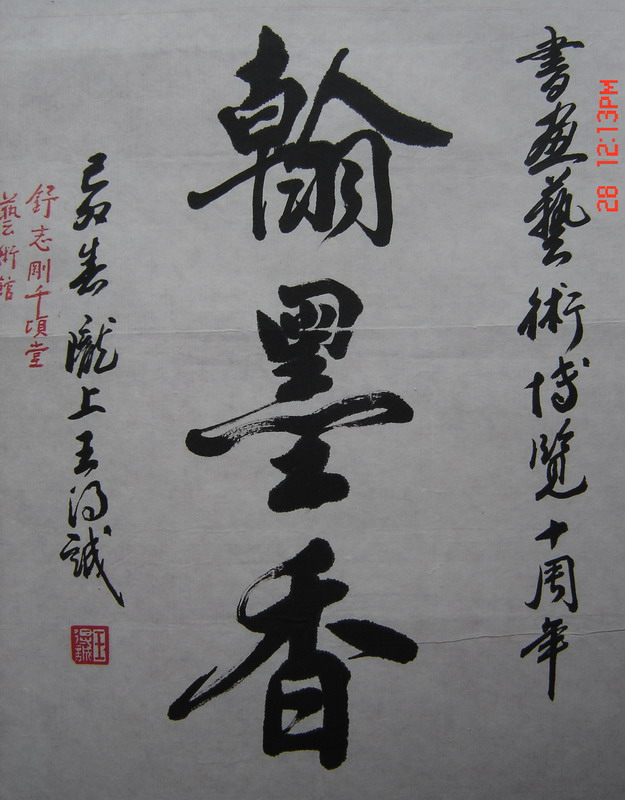 書畫藝術博覽十周年
翰墨香
己卯春 隴上王得誠
王得誠
舒志剛千頃堂
藝術館
28 12:13PM